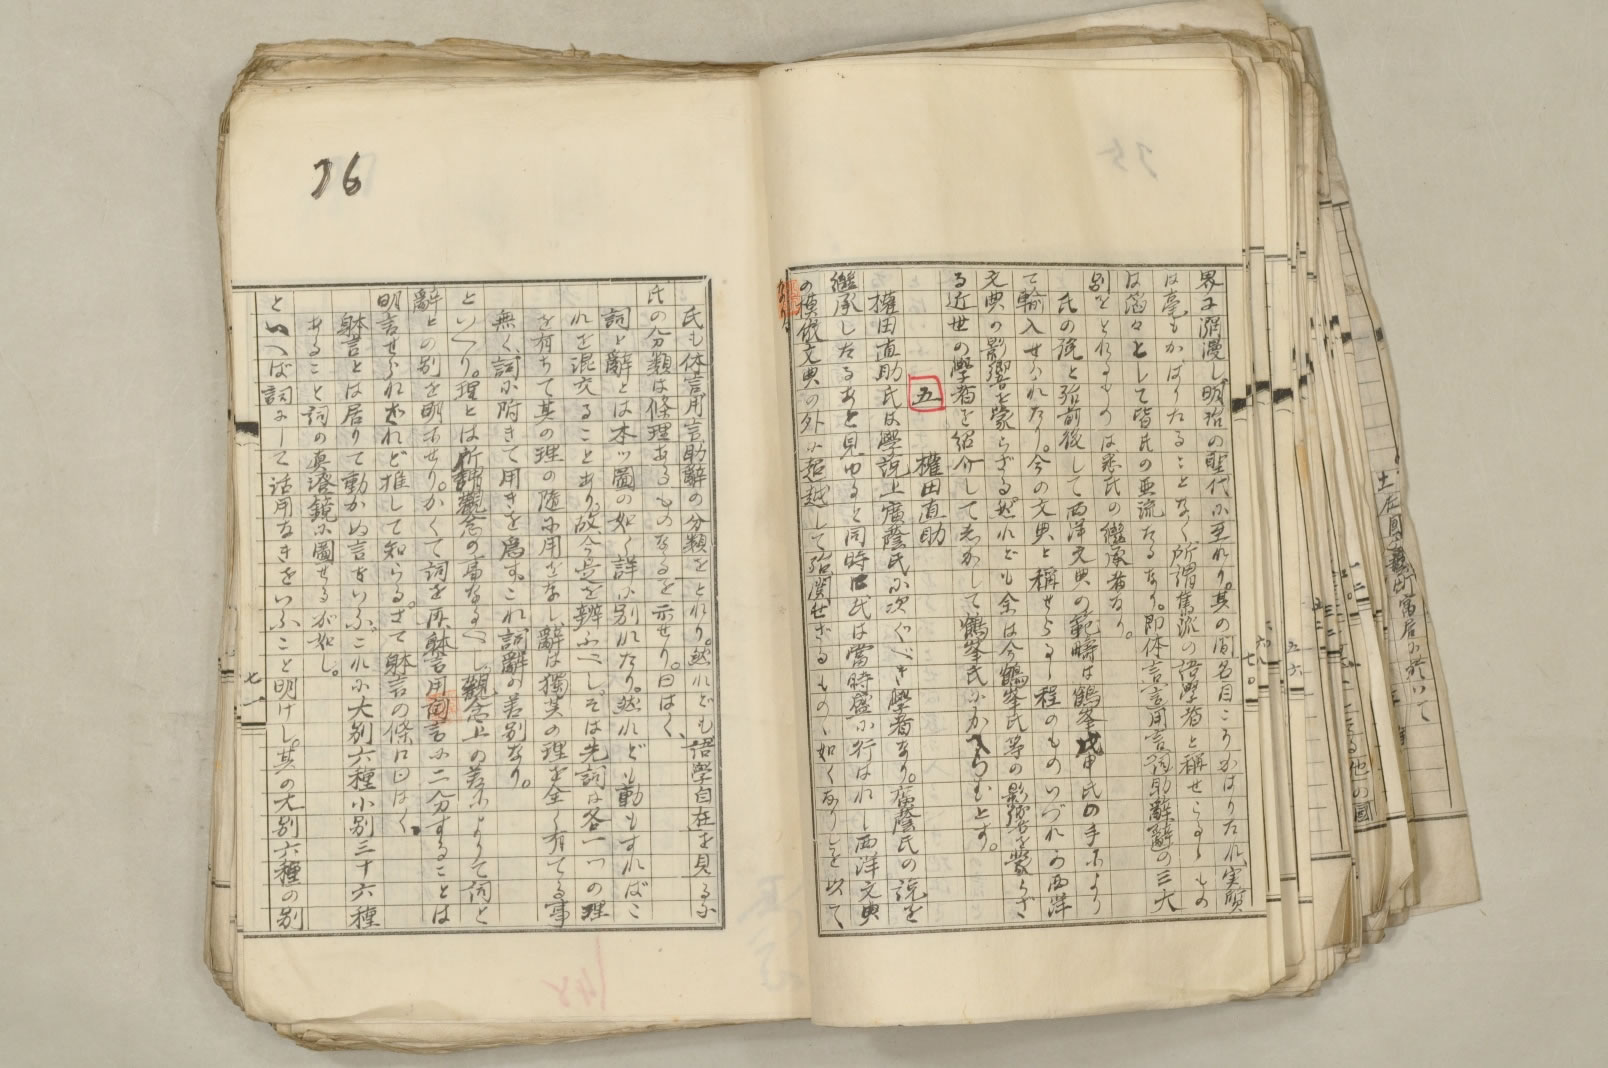 界に瀰漫し明治の聖代に至れり。其の間名目こそかはりたれ、実質
は毫もかはりたることなく所謂舊派の語學者と稱せらるゝもの
は滔々として皆氏の亜流たるなり。即体言言用言詞助辭辭の三大
別をとれるものは悉氏の継承者なり。
氏の説と殆前後して西洋文典の範疇は鶴峯戊申氏の手により
て輸入せられたり。今の文典と稱せらるゝ程のものいづれか西洋
文典の影響を蒙らざる。然れども余は今鶴峯氏等の影響を蒙らざ
る近世の學者を紹介して而して鶴峯氏にかへらむとす。
五 権田直助
権田直助氏は學説上廣蔭氏に次ぐべき學者なり。廣蔭氏の説を
継承したるあと見ゆると同時に氏は當時盛に行はれし西洋文典
の模倣文典の外に超越して殆関せざるものゝ如くなりしを以て
なり。
76
氏も体言用言助辭の分類をとれり。然れども語學自在を見るに
氏の分類は條理あるものなるを示せり。曰はく、
詞と辭とは本ツ圖の如く詳に別れたり。然れど動もすればこ
れを混交ることあり。故今是を辨ふべし。そは先詞は各一つの理
を有ちて其の理の隨に用をなし、辭は獨其の理を全く有てる事
無く詞に附きて用きを為す。これ詞辭の差別なり。
といへり。理とは所謂觀念の事なるべし。觀念上の差によりて詞と
辭との別を明示せり。かくて詞を再、躰言用言に二分することは
明言せられざれど推して知らる。さて躰言の條に曰はく、
躰言とは居りて動かぬ言をいふ。これに大別六種小別三十六種
あること詞の真澄鏡に圖せるが如し。
といへば詞にして活用なきをいふこと明けし。其の大別六種の別
七一
148
七〇